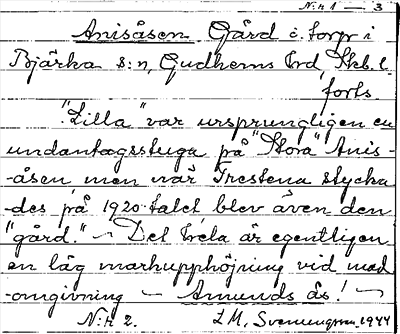 N:r 1 — 3
Anisåsen Gård o. torp i
Bjärka s:n, Gudhems hrd Skb. l.
forts.
"Lilla" var ursprungligen en
undantagsstuga på "Stora" Anis-
-åsen men när Trestena stycka
-des på 1920-talet blev även den
"gård." — Det hela är egentligen
en låg markupphöjning vid mad
-omgivning — Amunds ås! —
N:r 2. L M, Svennungsson. 1944